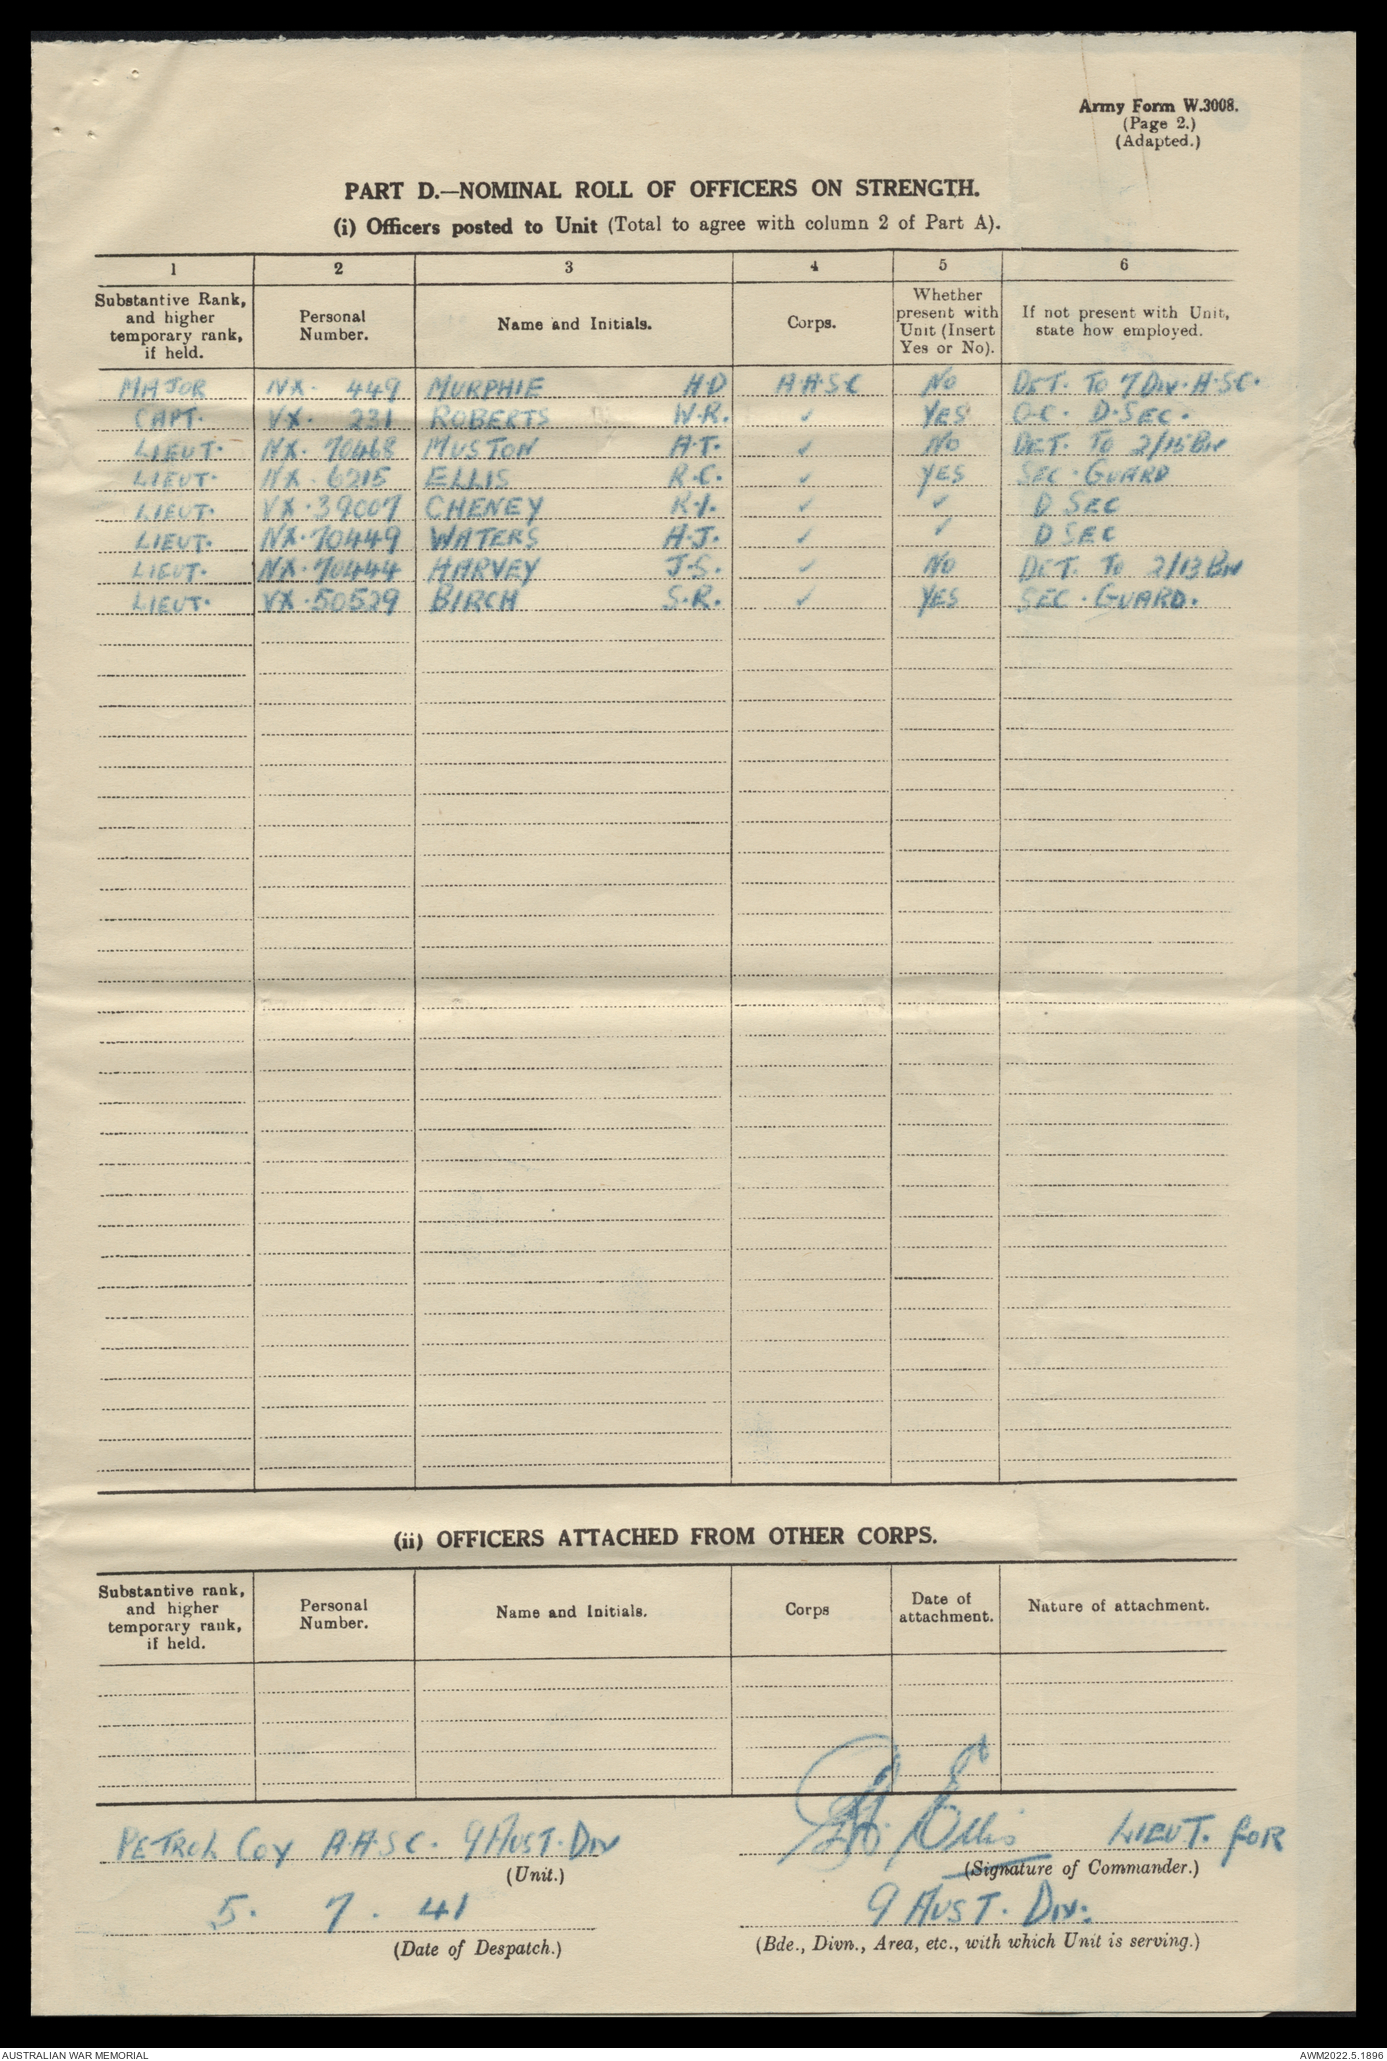 Army Form W.3008.
(Page 2.)
(Adapted.)
PART D.—NOMINAL ROLL OF OFFICERS ON STRENGTH.
(i) Officers posted to Unit (Total to agree with column 2 of Part A).
1 2 3 4 5 6
Substantive Rank, and higher temporary rank, if held. Personal Number. Name and Initials. Corps. Whether present with Unit (Insert Yes or No). If not present with Unit, state how employed.
MAJOR NX. 449 MURPHIE H D A A.S C NO DET. TO 7 DIV. A.SC.
CAPT. VX. 231 ROBERTS W.R. ✓ YES O.C. D.SEC.
LIEUT. NX. 70468 MUSTON A.T. ✓ NO DET. TO 2/15 BN
LIEUT. NX. 6215 ELLIS R.C. ✓ YES SEC. GUARD
LIEUT. VX.39007 CHENEY R.I. ✓ ✓ D SEC
LIEUT. NX.70449 WATERS A.J. ✓ ✓ D SEC
LIEUT. NX.70444 HARVEY J.S. ✓ NO DET. TO 2/13 BN
LIEUT. VX.50529 BIRCH S.R. ✓ YES SEC. GUARD.
(ii) OFFICERS ATTACHED FROM OTHER CORPS.
Substantive rank, and higher temporary rank, if held. Personal Number. Name and Initials. Corps Date of attachment. Nature of attachment.
PETROL COY A.A.S C. 9 AUST. DIV Ellis LIEUT. FOR
(Unit.) (Signature of Commander.)
5. 7. 41 9 AUST. DIV.
(Date of Despatch.) (Bde., Divn., Area, etc., with which Unit is serving.)
AUSTRALIAN WAR MEMORIAL AWM2022.5.1896